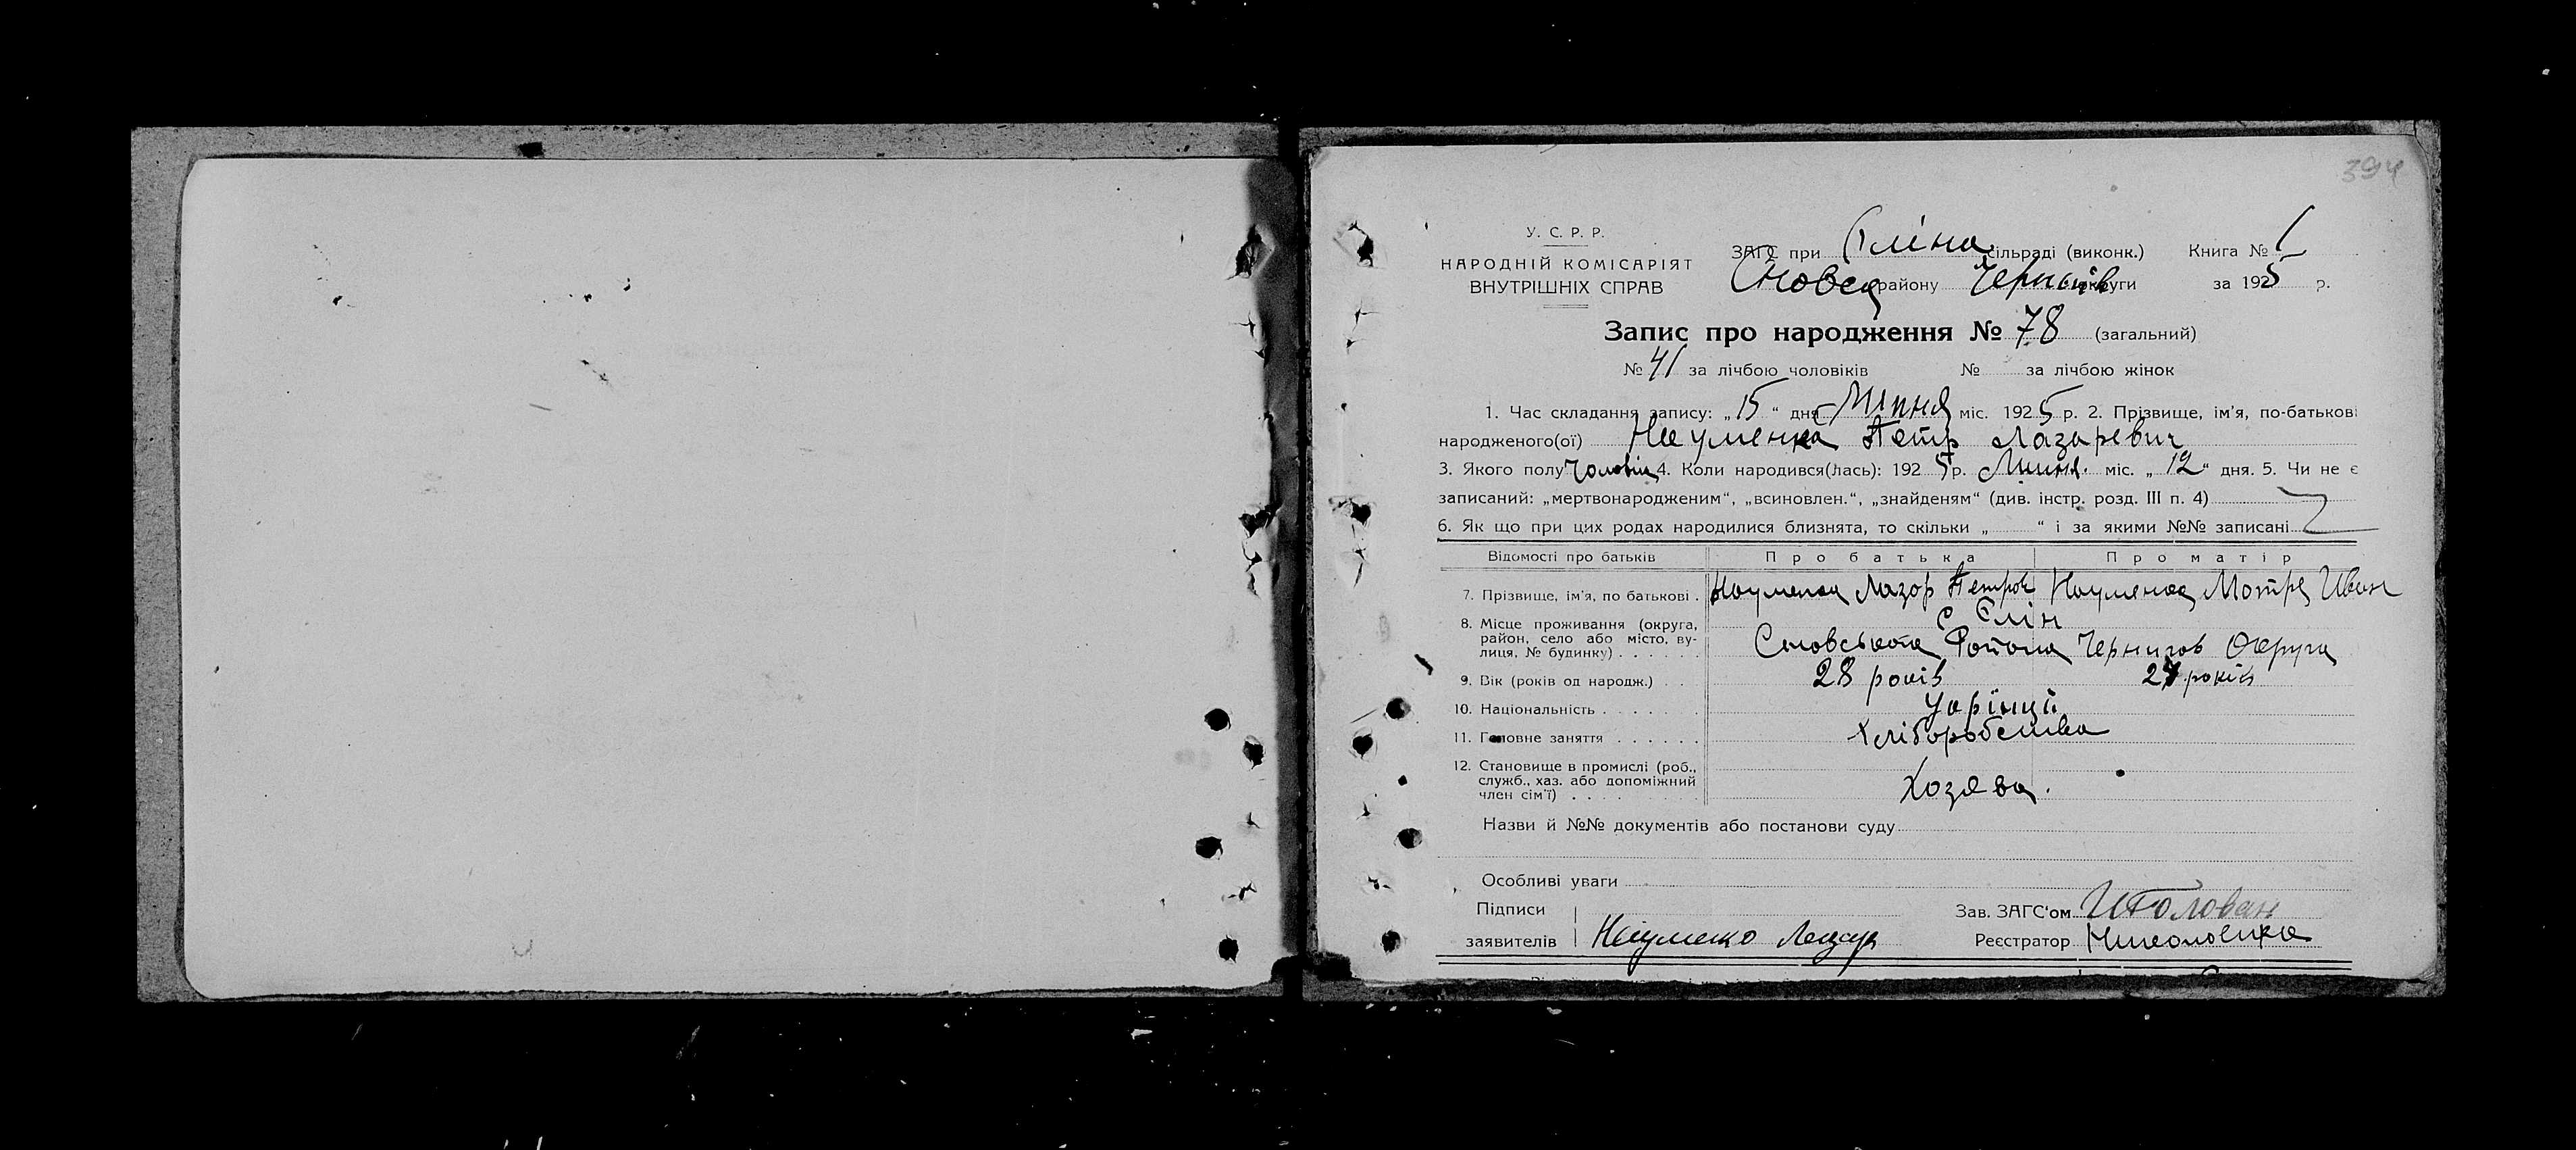 394
У. С. Р. Р.
НАРОДНІЙ КОМІСАРІЯТ
ВНУТРІШНІХ СПРАВ
ЗАГС при Єліна сільраді (виконк.) Книга № 1
Новск району Черниів округи за 1925 р.
Запис про народження № 78 (загальний)
№ 41 за лічбою чоловіків № за лічбою жінок
1. Час складання запису: „15“ дня міс. 1925 р. 2. Прізвище, ім'я, по-батькові
народженого(ої) Науменка Петр Лазаревич
3. Якого полу Чоловіц 4. Коли народився(лась): 1925 р. міс. „12“ дня. 5. Чи не є
записаний: „мертвонародженим“, „всиновлен.“, „знайденям“ (див. інстр. розд. III п. 4)
6. Як що при цих родах народилися близнята, то скільки „ “ і за якими №№ записані
Відомості про батьків Про батька Про матір
7. Прізвище, ім'я, по батькові . Науменка Лазор Петров Науменка Мотря Иван
8. Місце проживання (округа, район, село або місто, вулиця, № будинку) . . . . . . с Єлін
Сновського Району Чернигов Округа
9. Вік (років од народж.) . . 28 років 27 років
10. Національність . . . . . . . Украінці
11. Головне заняття . . . . . . Хліборобства
12. Становище в промислі (роб., служб., хаз. або допоміжний член сім'ї) . . . . Хозява.
Назви й №№ документів або постанови суду
Особливі уваги
Підписи Зав. ЗАГС'ом И Голован
заявителів Науменко Лазар Реєстратор